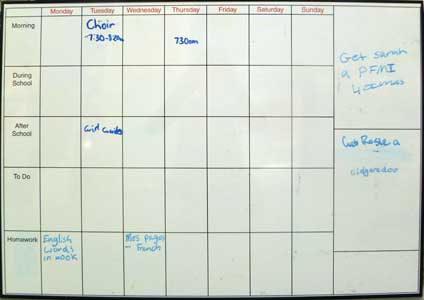 Monday Tuesday Wednesday Thursday Friday Saturday Sunday
Morning
Choir
7:30-8:20am
730am
During
School
After
School
Girl Guides
To Do
Homework
English
Words
in book
Mes pages
- French
Get sarah
a
4 xmas
Rosie a
didgeradoo